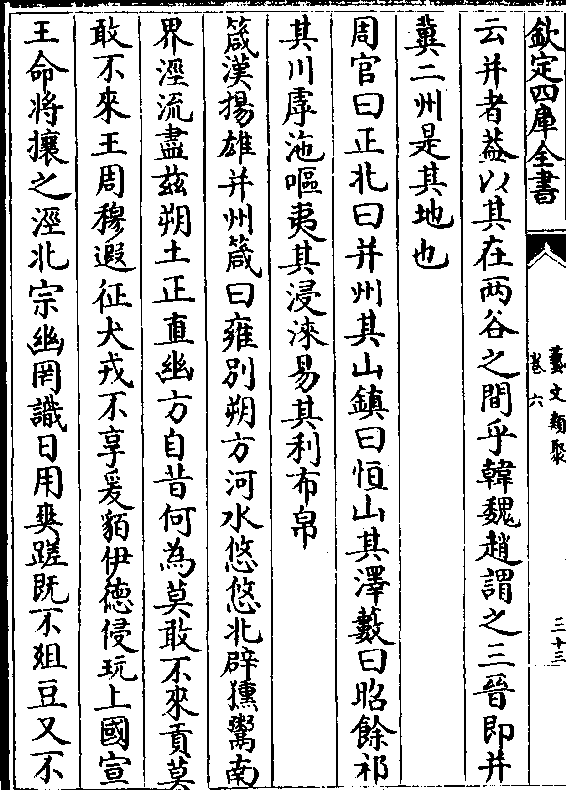 欽定四庫全書
藝文類聚
卷六
三十三
云并者葢以其在两谷之間乎韓魏趙謂之三晉即并
冀二州是其地也
周官曰正北曰并州其山鎮曰恒山其澤藪曰昭餘祁
其川虖池嘔夷其浸淶易其利布帛
箴漢揚雄并州箴曰雍别朔方河水悠悠北辟獯鬻南
界涇流盡兹朔土正直幽方自昔何為莫敢不來貢莫
敢不來王周穆遐征犬戎不享爰貊伊德侵玩上國宣
王命将攘之涇北宗幽罔識日用爽蹉既不爼豆又不